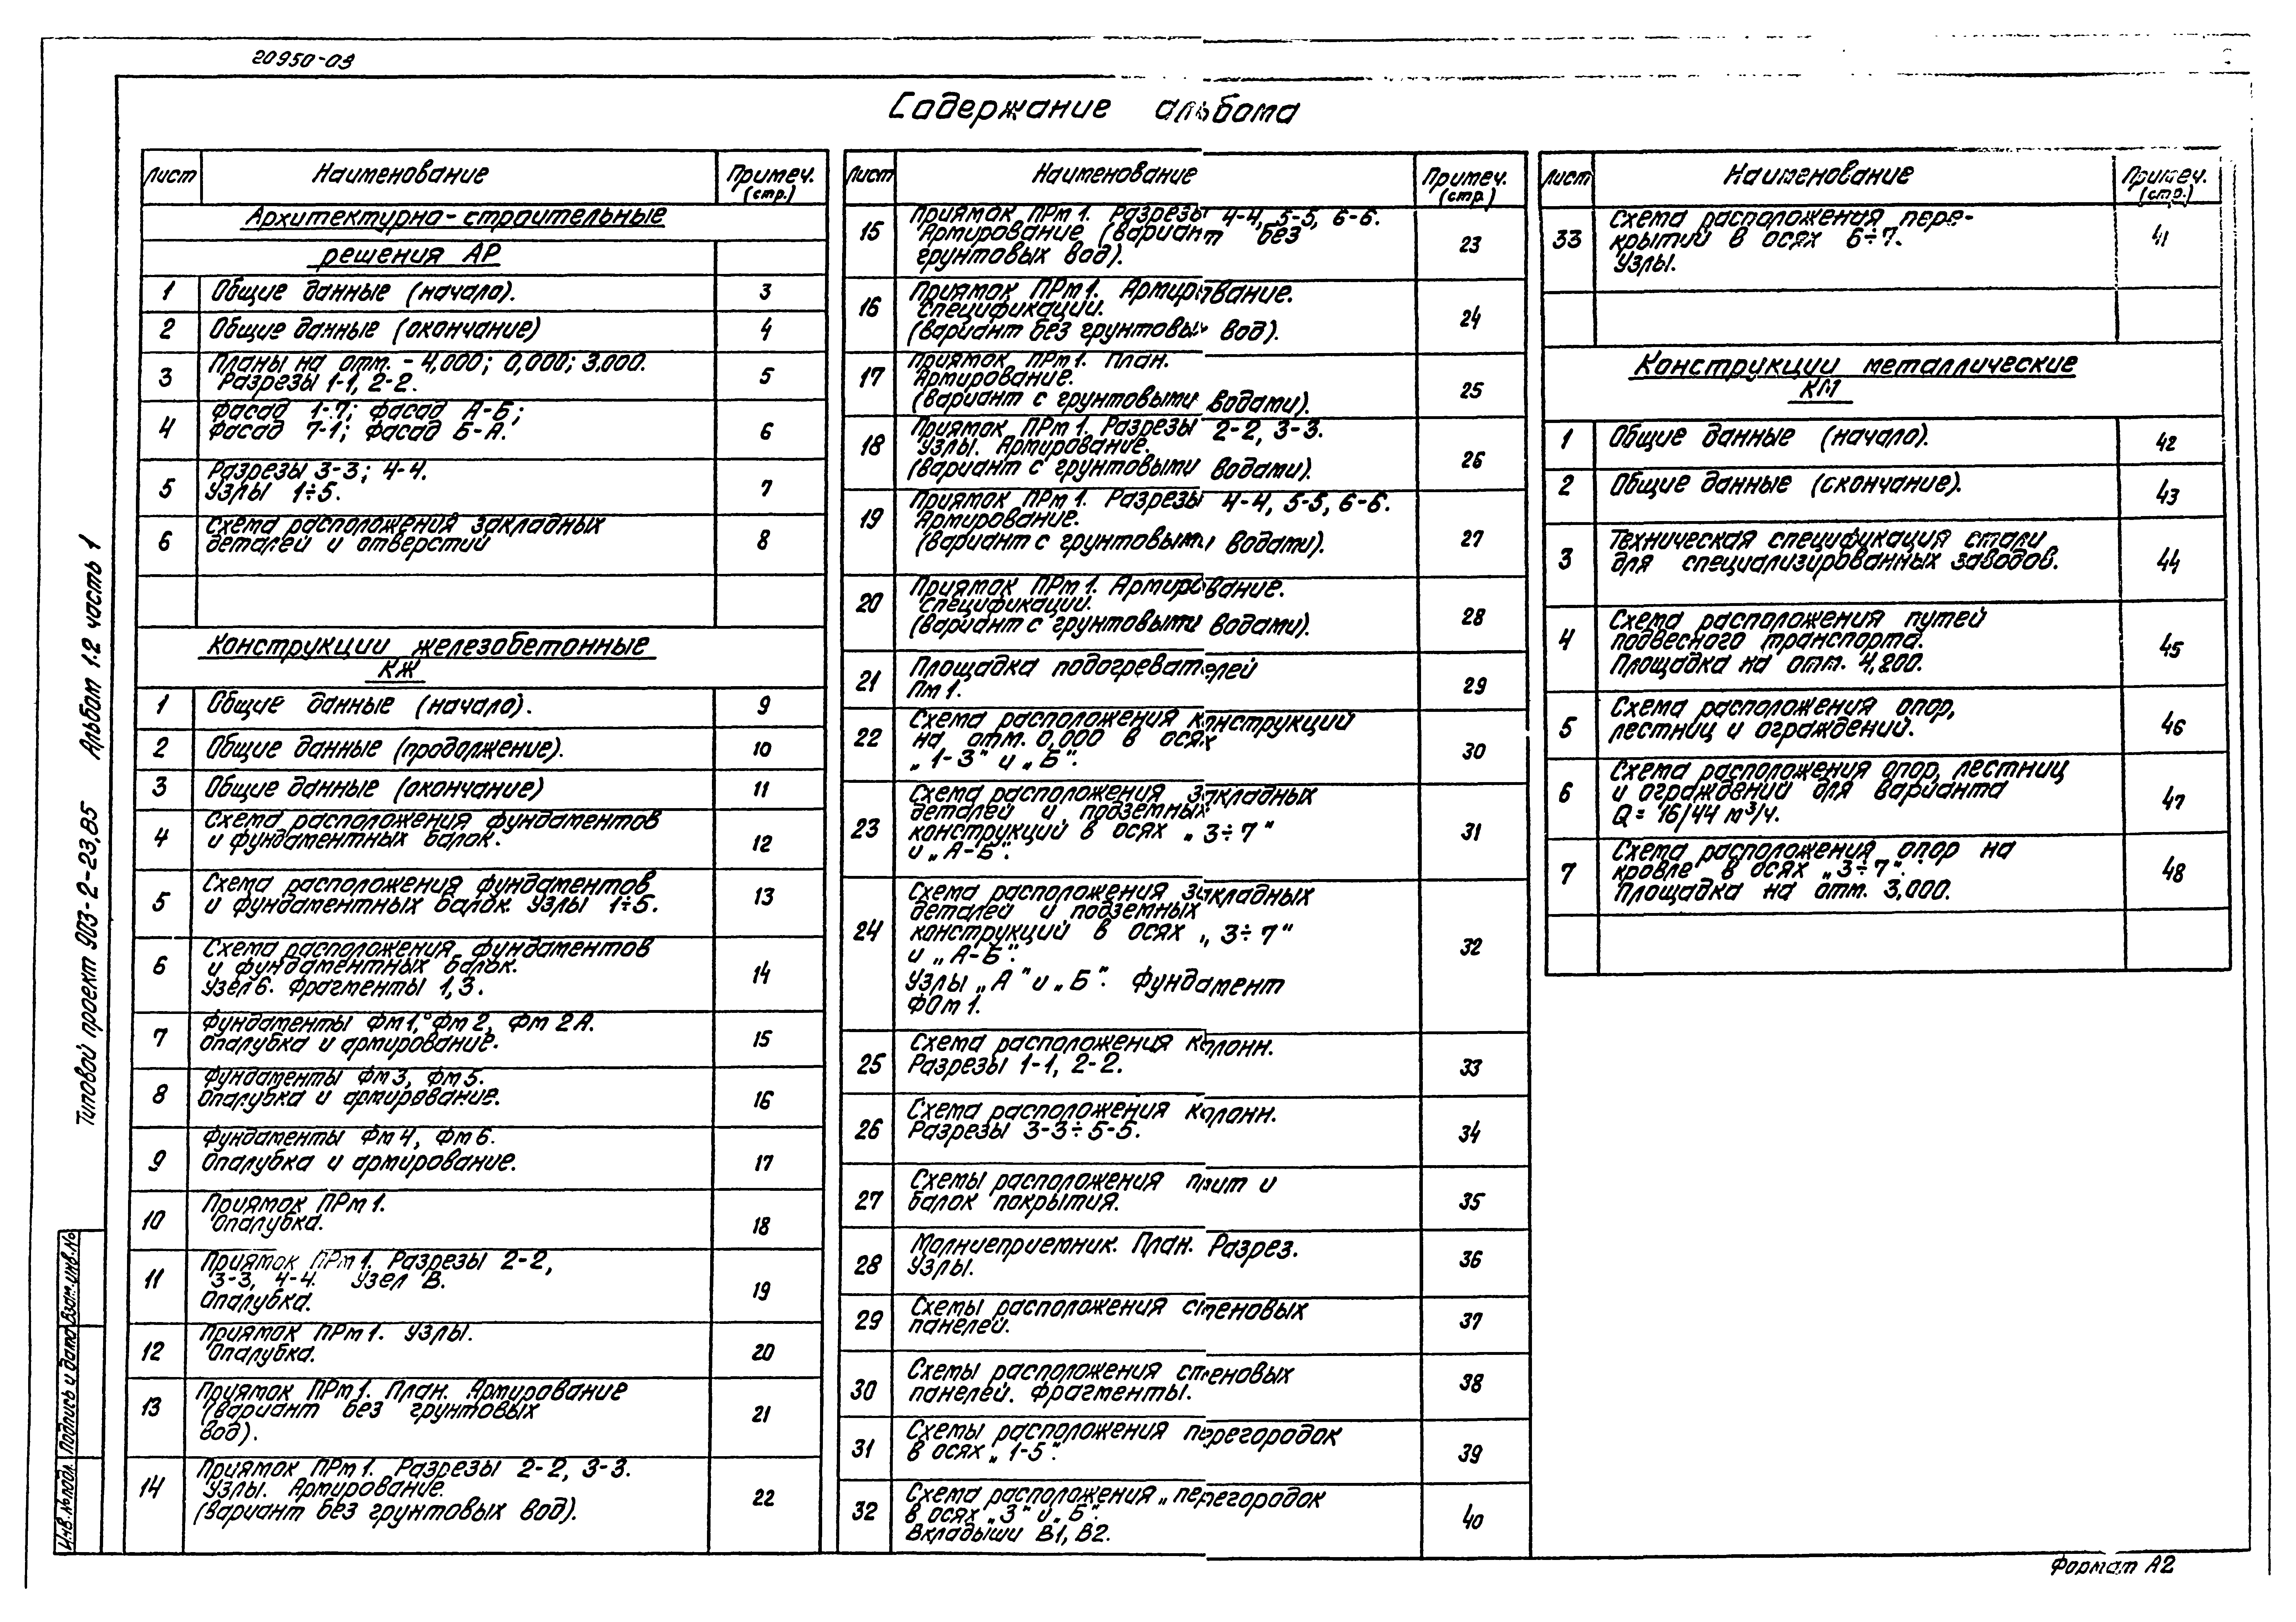 20950-03
Содержание альбома
Лист Наименование Примеч. (стр.)
Архитектурна-строительные
решения АР
1 Общие данные (начало). 3
2 Общие данные (окончание) 4
3 Планы на отм. - 4,000; 0,000; 3,000. 5
Разрезы 1-1, 2-2.
4 Фасад 1-7; фасад А-Б; 6
Фасад 7-1; фасад Б-А.
5 Разрезы 3-3; 4-4. 7
Узлы 1÷5.
6 Схема расположения закладных 8
деталей и отверстий
Конструкции железобетонные
КЖ
1 Общие данные (начало). 9
2 Общие данные (продолжение). 10
3 Общие данные (окончание) 11
4 Схема расположения фундаментов 12
и фундаментных балок.
5 Схема расположения фундаментов 13
и фундаментных балок. Узлы 1÷5.
6 Схема расположения фундаментов 14
и фундаментных балок.
Узел 6. Фрагменты 1, 3.
7 Фундаменты Фм 1, Фм 2, Фм 2А. 15
Опалубка и армирование.
8 Фундаменты Фм 3, Фм 5. 16
Опалубка и армирование.
9 Фундаменты Фм 4, Фм 6. 17
Опалубка и армирование.
10 Приямок ПРм 1. 18
Опалубка.
11 Приямок ПРм 1. Разрезы 2-2, 19
3-3, 4-4. Узел В.
Опалубка.
12 Приямок ПРм 1. Узлы. 20
Опалубка.
13 Приямок ПРм 1. План. Армирование 21
(вариант без грунтовых
вод).
14 Приямок ПРм 1. Разрезы 2-2, 3-3. 22
Узлы. Армирование.
(вариант без грунтовых вод).
Лист Наименование Примеч. (стр.)
15 Приямок ПРм 1. Разрезы 4-4, 5-5, 6-6. 23
Армирование (вариант без
грунтовых вод).
16 Приямок ПРм 1. Армирование. 24
Спецификации.
(вариант без грунтовых вод).
17 Приямок ПРм 1. План. 25
Армирование.
(вариант с грунтовыми водами).
18 Приямок ПРм 1. Разрезы 2-2, 3-3. 26
Узлы. Армирование.
(вариант с грунтовыми водами).
19 Приямок ПРм 1. Разрезы 4-4, 5-5, 6-6. 27
Армирование.
(вариант с грунтовыми водами).
20 Приямок ПРм 1. Армирование. 28
Спецификации.
(вариант с грунтовыми водами).
21 Площадка подогревателей 29
Пм 1.
22 Схема расположения конструкций 30
на отм. 0,000 в осях
„1-3" и „Б".
23 Схема расположения закладных 31
деталей и подземных
конструкций в осях „3÷7"
и „А-Б".
24 Схема расположения закладных 32
деталей и подземных
конструкций в осях „3÷7"
и „А-Б".
Узлы „А" и „Б". Фундамент
ФОм 1.
25 Схема расположения колонн. 33
Разрезы 1-1, 2-2.
26 Схема расположения колонн. 34
Разрезы 3-3÷5-5.
27 Схемы расположения плит и 35
балок покрытия.
28 Молниеприемник. План. Разрез. 36
Узлы.
29 Схемы расположения стеновых 37
панелей.
30 Схемы расположения стеновых 38
панелей. Фрагменты.
31 Схемы расположения перегородок 39
в осях „1-5".
32 Схема расположения „перегородок 40
в осях „3" и „Б".
Вкладыши В1, В2.
Лист Наименование Примеч. (стр.)
33 Схема расположения пере- 41
крытий в осях 6÷7.
Узлы.
Конструкции металлические
КМ
1 Общие данные (начало). 42
2 Общие данные (окончание). 43
3 Техническая спецификация стали 44
для специализированных заводов.
4 Схема расположения путей 45
подвесного транспорта.
Площадка на отм. 4,200.
5 Схема расположения опор, 46
лестниц и ограждений.
6 Схема расположения опор, лестниц 47
и ограждений для варианта
Q = 16/44 м³/ч.
7 Схема расположения опор на 48
кровле в осях „3÷7".
Площадка на отм. 3,000.
Типовой проект 903-2-23,85 Альбом 1.2 часть 1
Инв. № подл. Подпись и дата Взам. инв. №
Формат А2